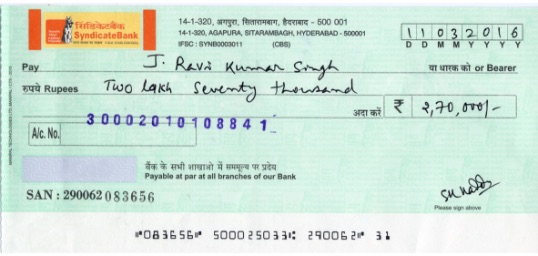 सिंडिकेटबैंक
SyndicateBank
14-1-320, अगपुरा, सितारामबाग, हैदराबाद - 500 001
14-1-320, AGAPURA, SITARAMBAGH, HYDERABAD - 500001
IFSC : SYNB0003011 (CBS)
11032016
D D M M Y Y Y Y
Pay J. Ravi Kumar Singh या धारक को or Bearer
रुपये Rupees Two lakh Seventy thousand
अदा करें ₹ 2,70,000/-
A/c. No. 30002010108841
बैंक के सभी शाखाओं में सममूल्य पर प्रदेय
Payable at par at all branches of our Bank
SAN : 290062 083656
Please sign above
⑈083656⑈ 500025033⑆ 290062⑈ 31